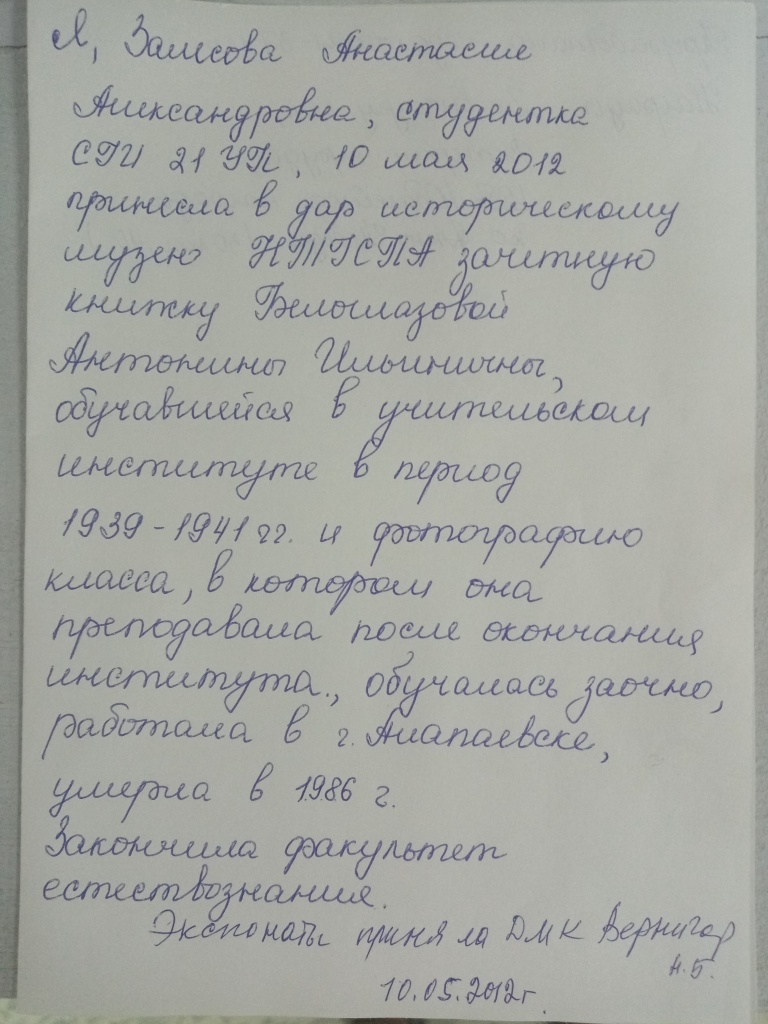 Я, Залесова Анастасия
Александровна, студентка
СГИ 21 УП, 10 мая 2012
принесла в дар историческому
музею НТГСПА зачетную
книжку Белоглазовой
Антонины Ильиничны,
обучавшейся в учительском
институте в период
1939-1941 гг. и фотографию
класса, в котором она
преподавала после окончания
института., обучалась заочно,
работала в г. Алапаевске,
умерла в 1986 г.
Закончила факультет
естествознания.
Экспонаты приняла ДМК Вернигор
Н.Б.
10.05.2012г